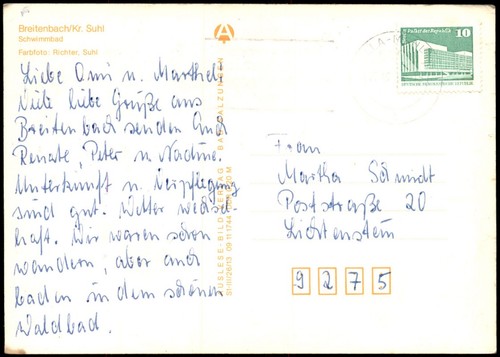 Breitenbach/Kr. Suhl
Schwimmbad
Farbfoto: Richter, Suhl
Liebe Omi u. Marthel!
Viele liebe Grüße aus
Breitenbach senden Euch
Renate, Peter u. Nadine.
Unterkunft u. Verpflegung
sind gut. Wetter wechsel-
haft. Wir waren schon
wandern, aber auch
baden in dem schönen
Waldbad.
AUSLESE-BILD-VERLAG · BAD SALZUNGEN
10
Frau
Martha Schmidt
Poststraße 20
Lichtenstein
9275